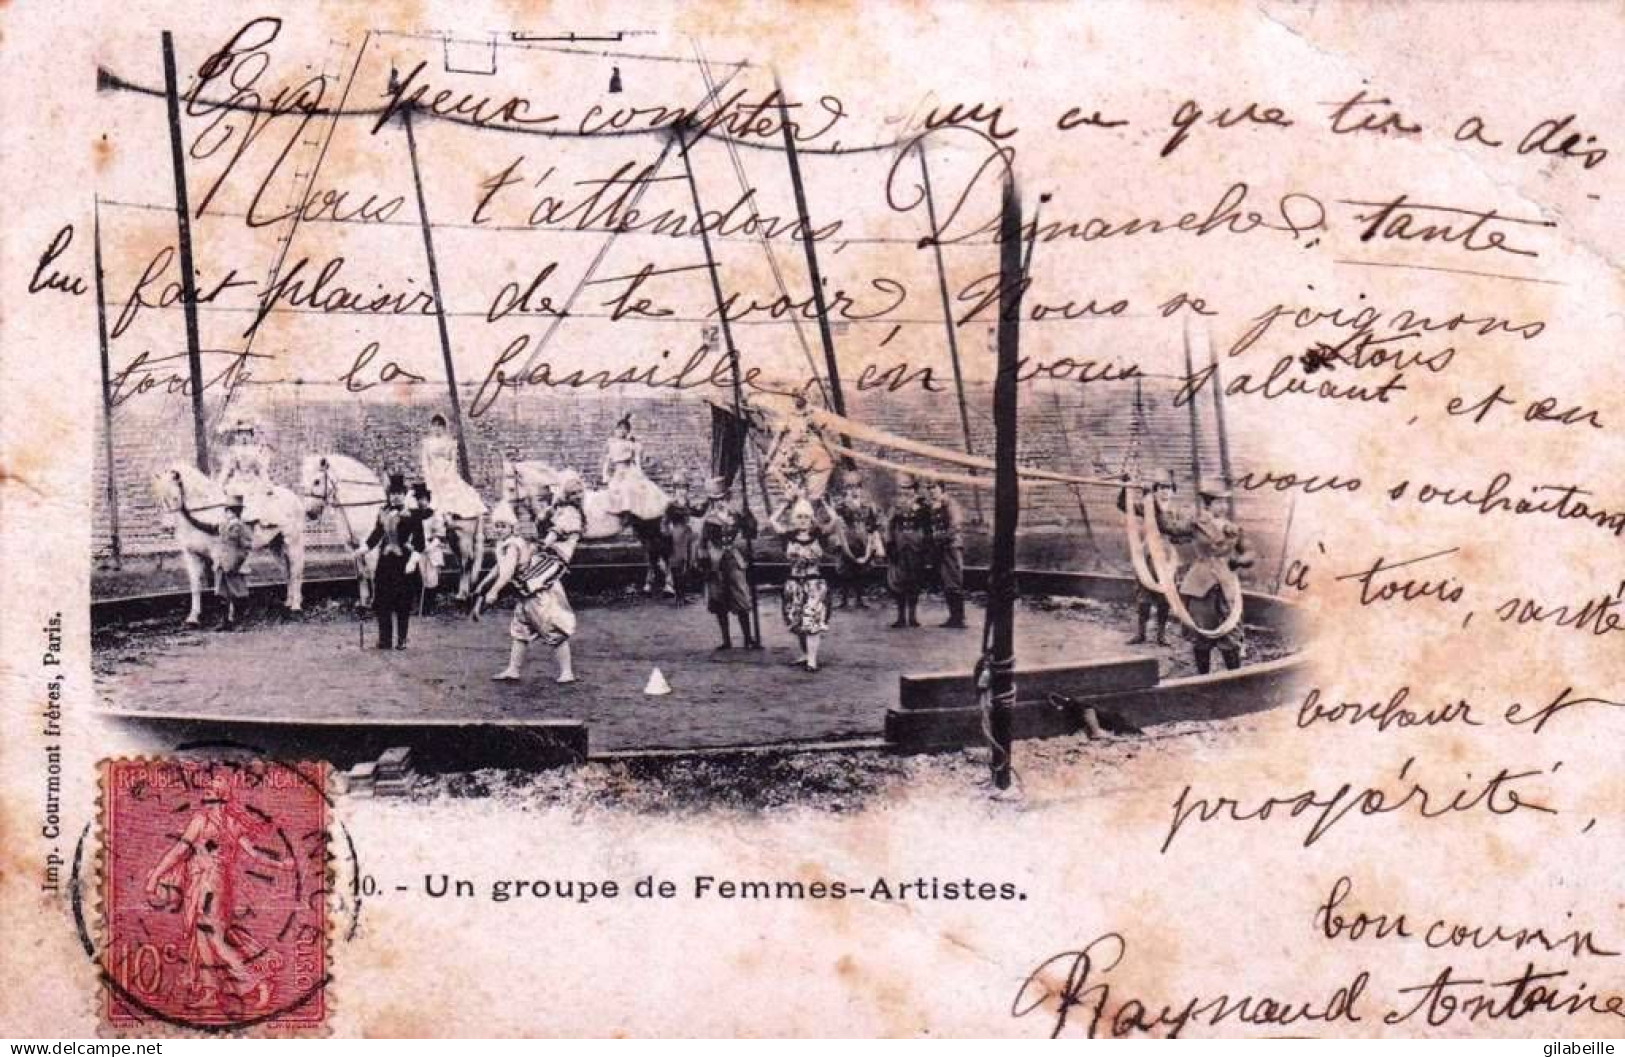 Tu peux compter, sur ce que tu a dis
Nous t'attendons, Dimanche, tante
lui fait plaisir de te voir, Nous se joignons
tous
toute la famille, en vous saluant, et en
vous souhaitant
à tous, santté
bonheur et
prospérité,
bon cousin
Raynaud Antoine
Imp. Courmont frères, Paris.
REPUBLIQUE FRANÇAISE
10c
10. - Un groupe de Femmes-Artistes.
gilabeille